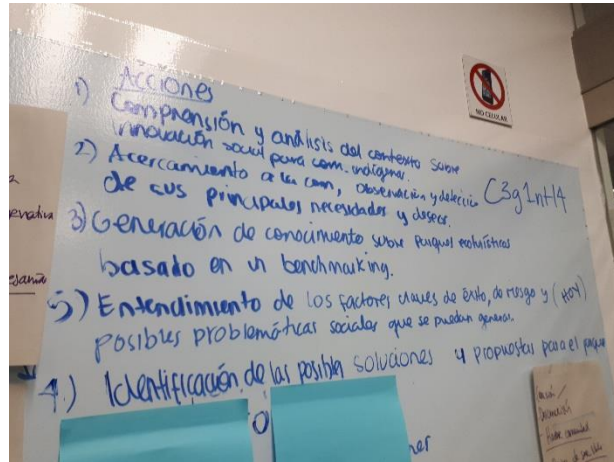 Acciones
1) Comprensión y análisis del contexto sobre
innovación social para com. indígenas.
2) Acercamiento a la com, observación y detección
de sus principales necesidades y deseos.
C3g1nt14
3) Generación de conocimiento sobre parques ecoturísticos
basado en un benchmarking.
5) Entendimiento de los factores claves de éxito, de riesgo y (HOY)
posibles problemáticas sociales que se puedan generar.
4.) Identificación de las posibles soluciones y propuestas para el parque
NO CELULAR